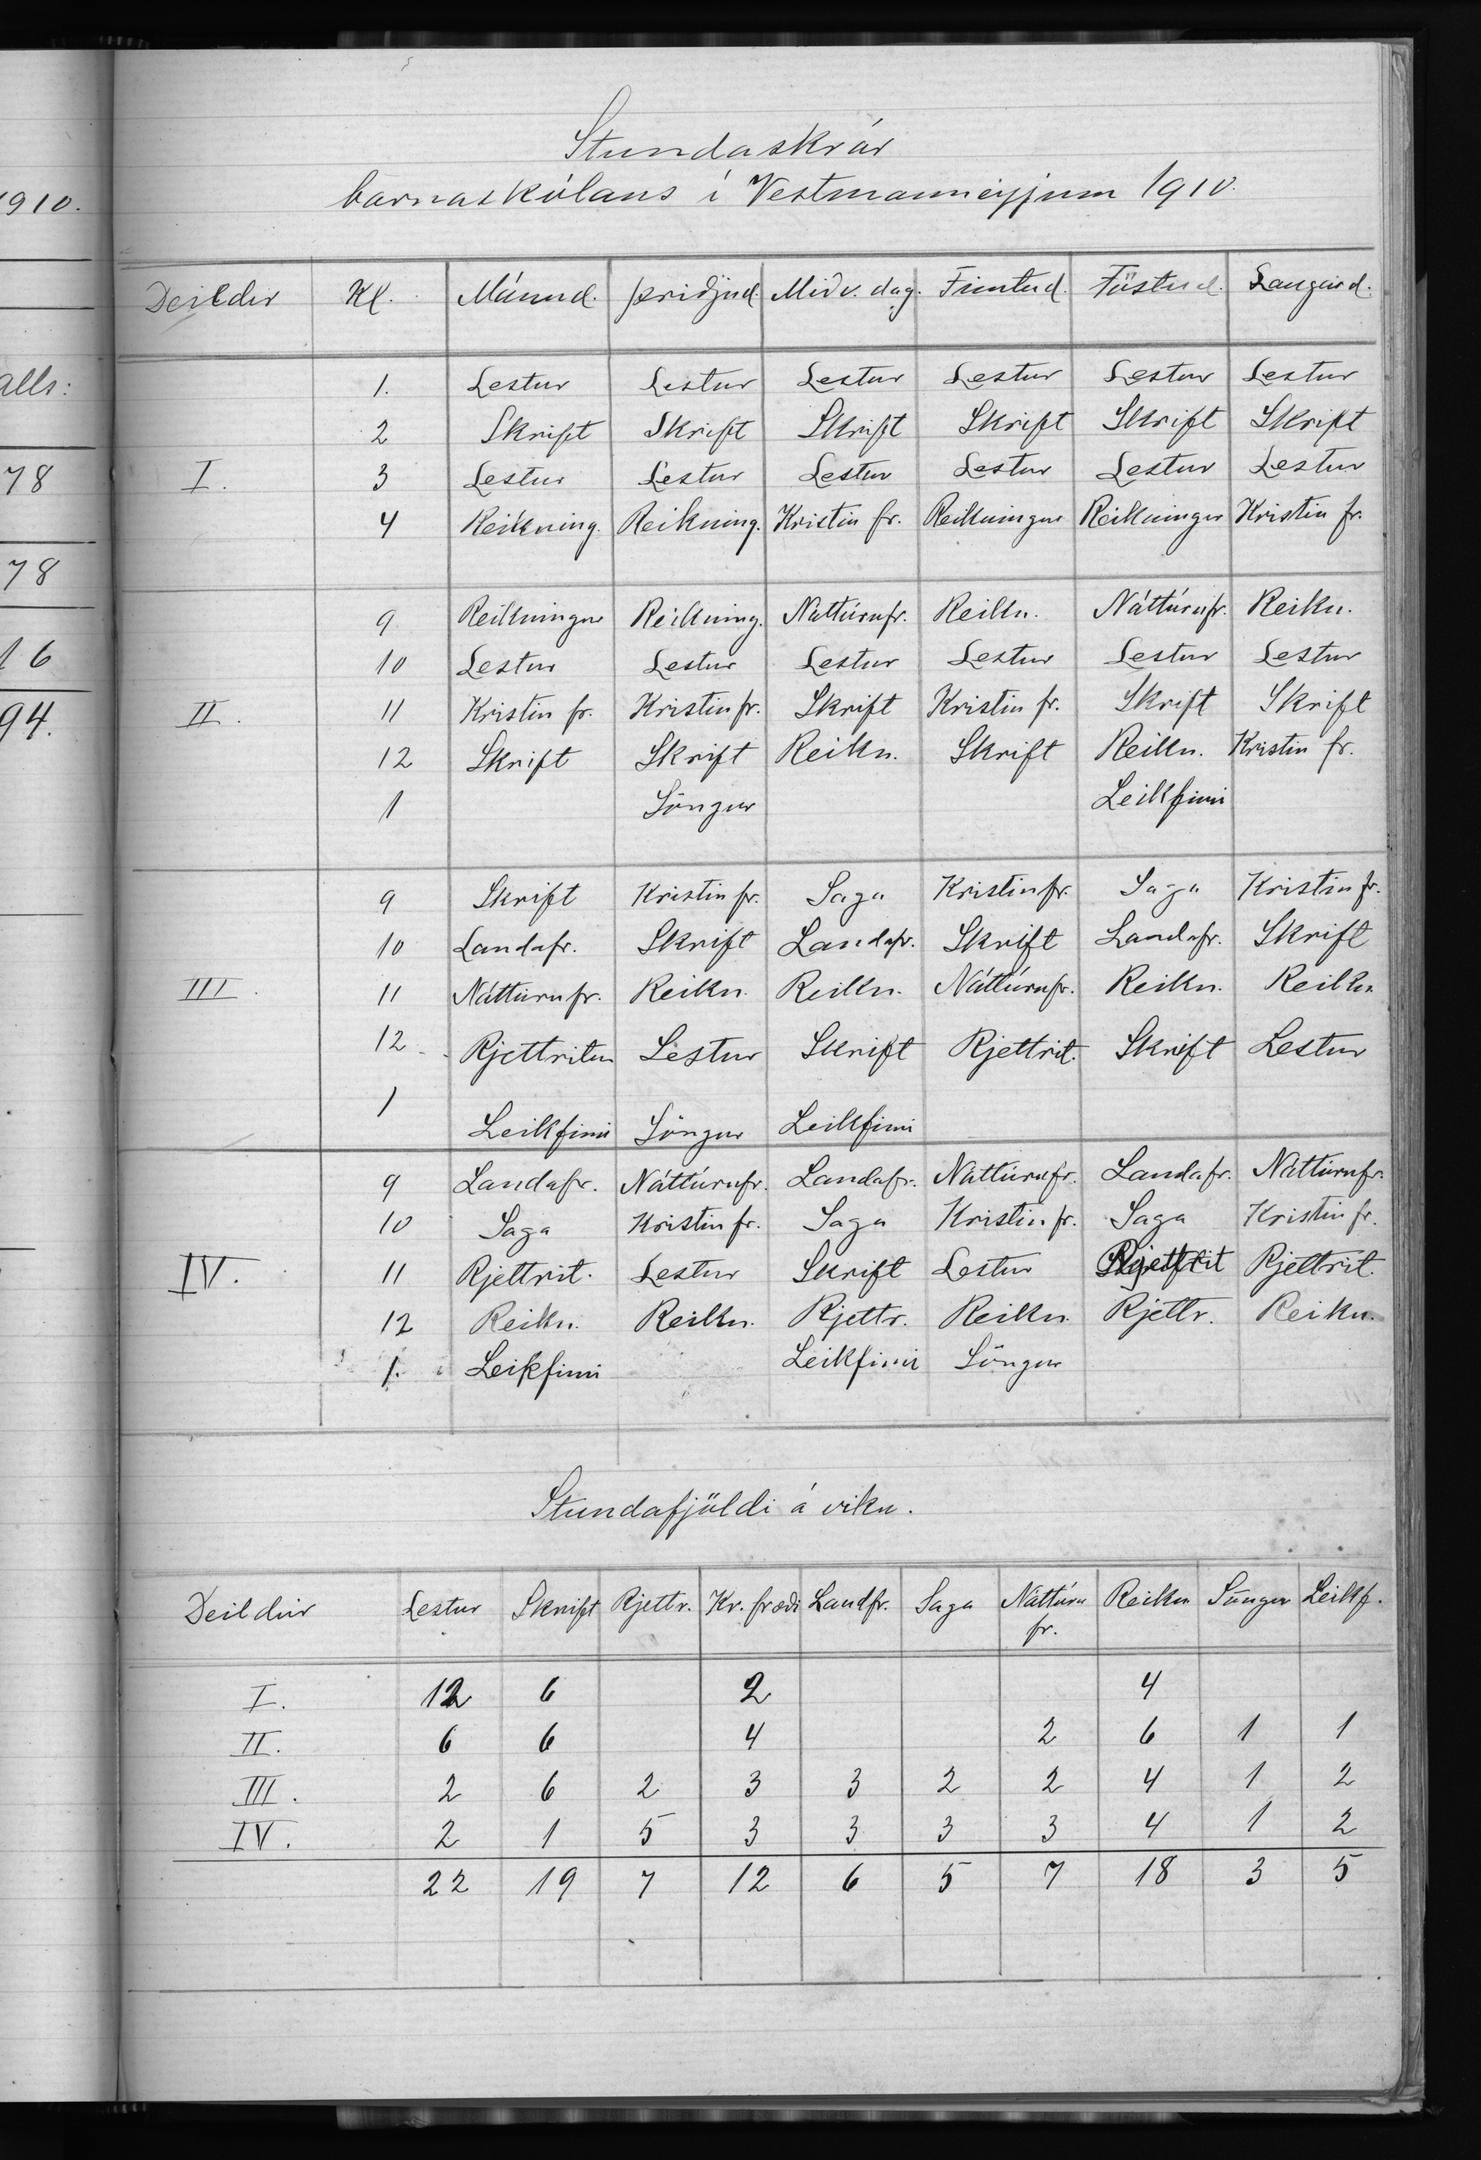 1910.
alls:
78
78
16
94.
Stundaskrár
barnaskólans í Vestmanneyjum 1910.
Deildir Kl. Mánud. þriðjud. Miðv.dag. Fimtud. Föstud. Laugard.
1. Lestur Lestur Lestur Lestur Lestur Lestur
2 Skrift Skrift Skrift Skrift Skrift Skrift
I. 3 Lestur Lestur Lestur Lestur Lestur Lestur
4 Reikning. Reikning. Kristin fr. Reikningur Reikningur Kristin fr.
9 Reikningur Reikning. Náttúrufr. Reikn. Náttúrufr. Reikn.
10 Lestur Lestur Lestur Lestur Lestur Lestur
II. 11 Kristin fr. Kristin fr. Skrift Kristin fr. Skrift Skrift
12 Skrift Skrift Reikn. Skrift Reikn. Kristin fr.
1 Söngur Leikfimi
9 Skrift Kristin fr. Saga Kristin fr. Saga Kristin fr.
10 Landafr. Skrift Landafr. Skrift Landafr. Skrift
III. 11 Náttúrufr. Reikn. Reikn. Náttúrufr. Reikn. Reikn
12 Rjettritun Lestur Skrift Rjettrit. Skrift Lestur
1 Leikfimi Söngur Leikfimi
9 Landafr. Náttúrufr. Landafr. Náttúrufr. Landafr. Náttúrufr.
10 Saga Kristin fr. Saga Kristin fr. Saga Kristin fr.
IV. 11 Rjettrit. Lestur Skrift Lestur Rjettrit Rjettrit.
12 Reikn. Reikn. Rjettr. Reikn. Rjettr. Reikn.
1. Leikfimi Leikfimi Söngur
Stundafjöldi á viku.
Deildir Lestur Skrift Rjettr. Kr. fræði Landfr. Saga Náttúru fr. Reikn Söngur Leikf.
I. 12 6 2 4
II. 6 6 4 2 6 1 1
III. 2 6 2 3 3 2 2 4 1 2
IV. 2 1 5 3 3 3 3 4 1 2
22 19 7 12 6 5 7 18 3 5